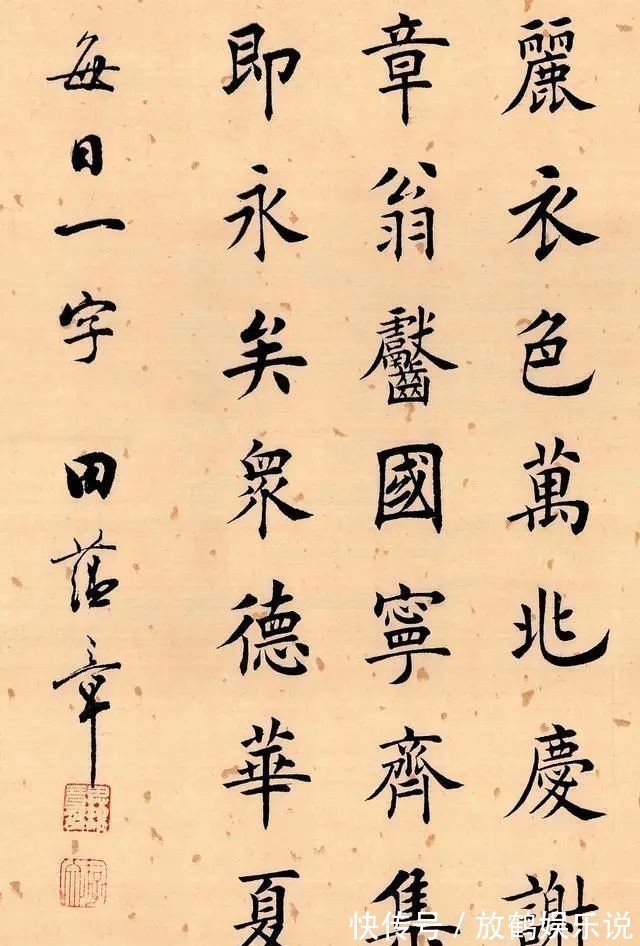 麗衣色萬北慶謝
章翁齾國寧齊集
即永矣眾德華夏
每日一字 田蘊章
快传号/放鹤娱乐说